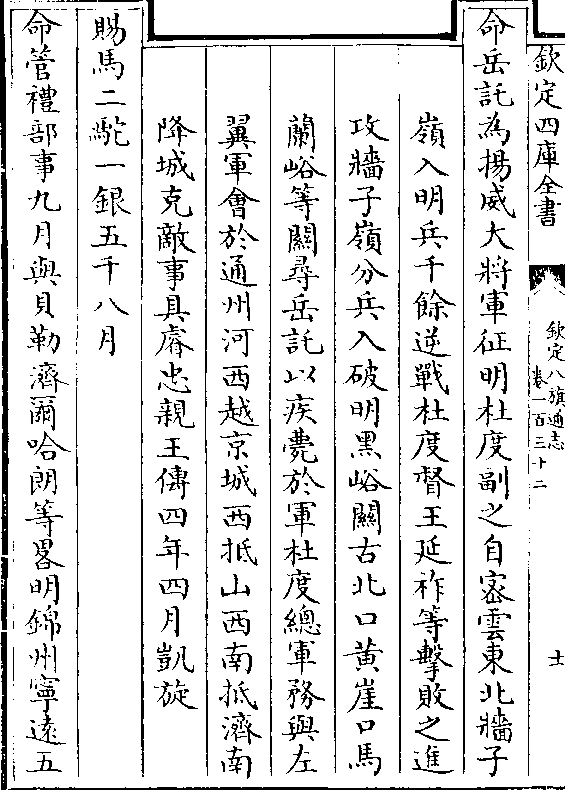 欽定四庫全書
欽定八旗通志
卷一百三十二
士
命岳託為揚威大將軍征明杜度副之自宻雲東北牆子
嶺入明兵千餘逆戰杜度督王延祚等擊敗之進
攻牆子嶺分兵入破明黒峪關古北口黄崖口馬
蘭峪等關尋岳託以疾薨於軍杜度總軍務與左
翼軍會於通州河西越京城西抵山西南抵濟南
降城克敵事具睿忠親王傳四年四月凱旋
賜馬二駝一銀五千八月
命管禮部事九月與貝勒濟爾哈朗等畧明錦州寧遠五